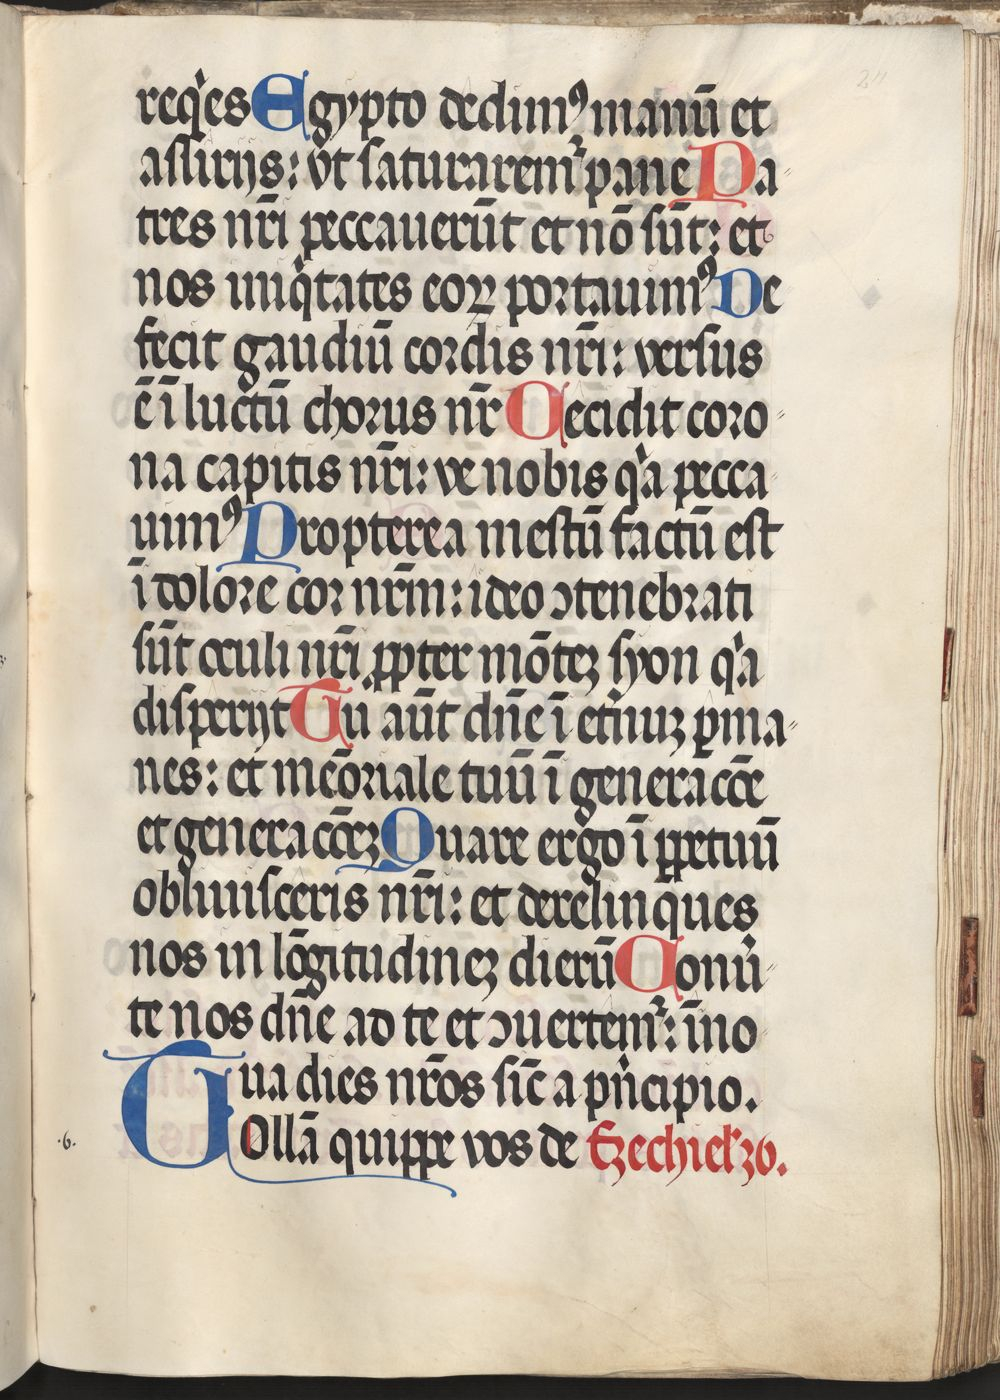 req̓es Egypto dedim᷒ manū et
assirijs: vt saturarem᷑ pane Pa〃
tres nr̄i peccauerūt et nō sūt: et
nos iniq̓tates eoꝝ portauim᷒ De
fecit gaudiū cordis nr̄i: versus
ē ī luctū chorus nr̄ Cecidit coro〃
na capitis nr̄i: ve nobis q̓a pecca〃
uim᷒ Propterea mestū factū est
ī dolore cor nr̄m: ideo ↄtenebrati
sūt oculi nr̄i ꝓpter mōteꝫ syon q̓a
disperijt Tu aūt dn̄e ī et̓nuꝫ ꝑma〃
nes: et meōriale tuū ī generac̄ōe
et generac̄ōeꝫ Quare ergo ī ꝑpetuū
obliuisceris nr̄i: et derelinques
nos in lōgitudineꝫ dierū Conu̓〃
te nos dn̄e ad te et ↄuertem᷑: īno
ua dies nr̄os sic̄ a pn̓cipio.
.6. Tollā quippe vos de Ezechiel 36.
24